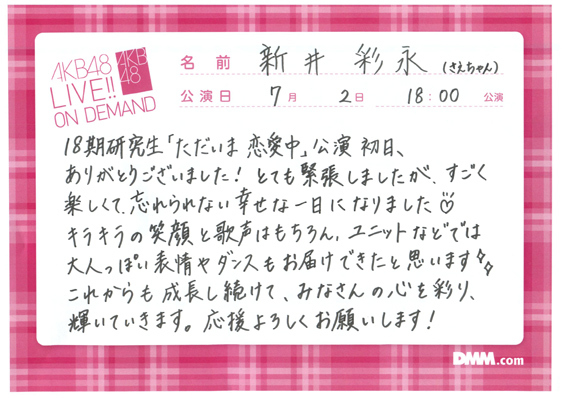 AKB48
LIVE!!
ON DEMAND
AKB
48
名前 新井 彩永 (さえちゃん)
公演日 7月 2日 18:00 公演
18期研究生「ただいま 恋愛中」公演 初日、
ありがとうございました! とても緊張しましたが、すごく
楽しくて、忘れられない幸せな一日になりました♡
キラキラの笑顔と歌声はもちろん、ユニットなどでは
大人っぽい表情やダンスもお届けできたと思います✨
これからも成長し続けて、みなさんの心を彩り、
輝いていきます。応援よろしくお願いします!
DMM.com